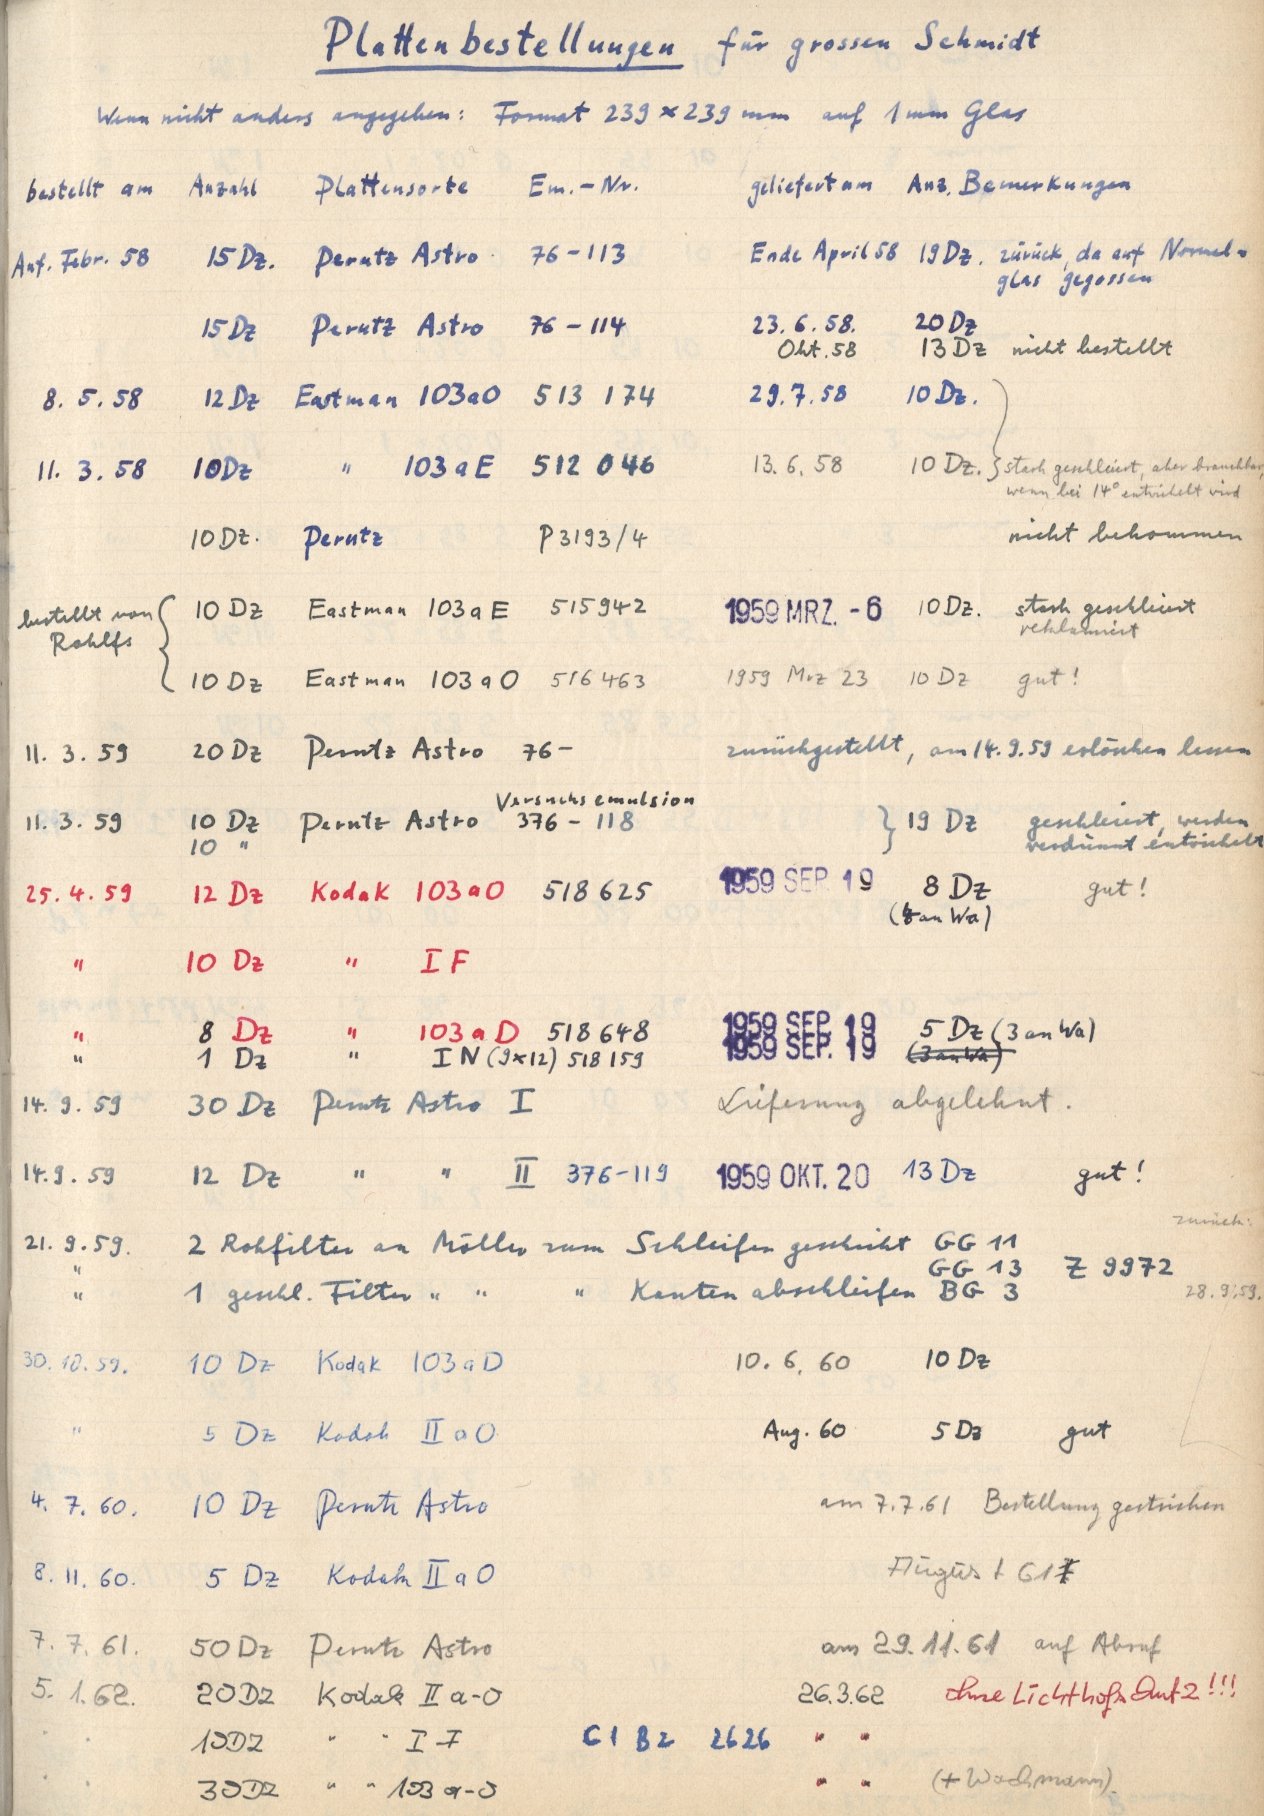 Plattenbestellungen für grossen Schmidt
Wenn nicht anders angegeben: Format 239 × 239 mm auf 1 mm Glas
bestellt am Anzahl Plattensorte Em.-Nr. geliefert am Anz. Bemerkungen
Anf. Febr. 58 15 Dz. Perutz Astro 76-113 Ende April 58 19 Dz. zürück, da auf Normal-
glas gegossen
15 Dz Perutz Astro 76-114 23.6.58. 20 Dz
Okt. 58 13 Dz nicht bestellt
8. 5. 58 12 Dz Eastman 103aO 513 174 29.7.58 10 Dz.
11. 3. 58 10 Dz " 103aE 512 046 13.6.58 10 Dz. } stark geschleiert, aber brauchbar,
wenn bei 14° entwickelt wird
10 Dz. Perutz P3193/4 nicht bekommen
bestellt von { 10 Dz Eastman 103aE 515942 1959 MRZ. -6 10 Dz. stark geschleiert
Rohlfs reklamiert
10 Dz Eastman 103aO 516463 1959 Mrz 23 10 Dz gut!
11. 3. 59 20 Dz Perutz Astro 76- zurückgestellt, am 14.9.59 erlöschen lassen
Versuchsemulsion
11. 3. 59 10 Dz Perutz Astro 376-118 } 19 Dz geschleiert, werden
10 " verdünnt entwickelt
25. 4. 59 12 Dz Kodak 103aO 518625 1959 SEP. 19 8 Dz gut!
(4 an Wa)
" 10 Dz " I F
" 8 Dz " 103aD 518648 1959 SEP. 19 5 Dz (3 an Wa)
" 1 Dz " I N (9×12) 518159 1959 SEP. 19 (3 an Wa)
14. 9. 59 30 Dz Perutz Astro I Lieferung abgelehnt.
14.9.59 12 Dz " " II 376-119 1959 OKT. 20 13 Dz gut!
zurück:
21. 9.59. 2 Rohfilter an Möller zum Schleifen geschickt GG 11
" GG 13 Z 9972
" 1 geschl. Filter " " " Kanten abschleifen BG 3 28.9.59.
30.10.59. 10 Dz Kodak 103aD 10.6.60 10 Dz
" 5 Dz Kodak II aO Aug. 60 5 Dz gut
4. 7. 60. 10 Dz Perutz Astro am 7.7.61 Bestellung gestrichen
8. 11. 60. 5 Dz Kodak II aO August 61
7. 7. 61. 50 Dz Perutz Astro am 29.11.61 auf Abruf
5. 1.62. 20 DZ Kodak II a-O 26.3.62 ohne Lichthofschutz!!!
" 10 DZ " " I F C1 B2 2626 " "
" 30 DZ " " 103 a-O " " (+ Wachmann).